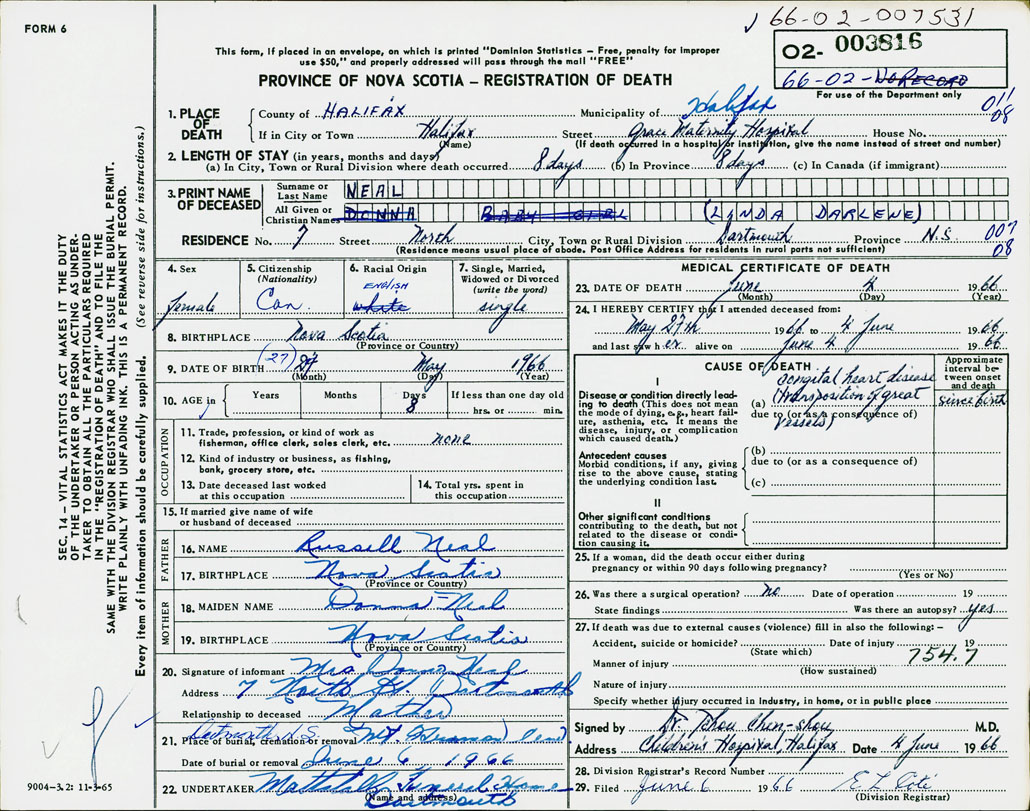 FORM 6
66-02-007531
O2- 003816
66-02-NO RECORD
For use of the Department only
This form, if placed in an envelope, on which is printed "Dominion Statistics – Free, penalty for improper
use $50," and properly addressed will pass through the mail "FREE"
PROVINCE OF NOVA SCOTIA – REGISTRATION OF DEATH
1. PLACE OF DEATH County of HALIFAX Municipality of Halifax 011
08
If in City or Town Halifax Street Grace Maternity Hospital House No.
(Name) (If death occurred in a hospital or institution, give the name instead of street and number)
2. LENGTH OF STAY (in years, months and days)
(a) In City, Town or Rural Division where death occurred 8 days (b) In Province 8 days (c) In Canada (if immigrant)
3. PRINT NAME OF DECEASED
Surname or Last Name NEAL
All Given or Christian Names DONNA BABY GIRL (LINDA DARLENE)
RESIDENCE No. 7 Street North City, Town or Rural Division Dartmouth Province N.S. 007
08
(Residence means usual place of abode. Post Office Address for residents in rural parts not sufficient)
4. Sex
female
5. Citizenship
(Nationality)
Can.
6. Racial Origin
ENGLISH
white
7. Single, Married,
Widowed or Divorced
(write the word)
single
8. BIRTHPLACE Nova Scotia
(Province or Country)
9. DATE OF BIRTH (27) 27 May 1966
(Month) (Day) (Year)
10. AGE in Years Months Days If less than one day old
8 hrs. or min.
OCCUPATION
11. Trade, profession, or kind of work as
fisherman, office clerk, sales clerk, etc. none
12. Kind of industry or business, as fishing,
bank, grocery store, etc.
13. Date deceased last worked
at this occupation
14. Total yrs. spent in
this occupation
15. If married give name of wife
or husband of deceased
FATHER
16. NAME Russell Neal
17. BIRTHPLACE Nova Scotia
(Province or Country)
MOTHER
18. MAIDEN NAME Donna Neal
19. BIRTHPLACE Nova Scotia
(Province or Country)
20. Signature of informant Mrs Donna Neal
Address 7 North St. Dartmouth
Relationship to deceased Mother
Dartmouth N.S.
21. Place of burial, cremation or removal Mt. Hermon Cem.
Date of burial or removal June 6 1966
22. UNDERTAKER Mattatall Funeral Home
(Name and address) Dartmouth
MEDICAL CERTIFICATE OF DEATH
23. DATE OF DEATH June 4 1966
(Month) (Day) (Year)
24. I HEREBY CERTIFY that I attended deceased from:
May 27th 1966 to 4 June 1966
and last saw her alive on June 4 1966
CAUSE OF DEATH
Approximate
interval be-
tween onset
and death
I
Disease or condition directly lead-
ing to death (This does not mean
the mode of dying, e.g., heart fail-
ure, asthenia, etc. It means the
disease, injury, or complication
which caused death.)
(a) congital heart disease
(transposition of great
vessels)
due to (or as a consequence of)
since birth
Antecedent causes
Morbid conditions, if any, giving
rise to the above cause, stating
the underlying condition last.
(b)
due to (or as a consequence of)
(c)
II
Other significant conditions
contributing to the death, but not
related to the disease or condi-
tion causing it.
25. If a woman, did the death occur either during
pregnancy or within 90 days following pregnancy?
(Yes or No)
26. Was there a surgical operation? no Date of operation 19
State findings Was there an autopsy? yes
27. If death was due to external causes (violence) fill in also the following: –
Accident, suicide or homicide? Date of injury 19
(State which) 754.7
Manner of injury
(How sustained)
Nature of injury
Specify whether injury occurred in industry, in home, or in public place
Signed by Dr. Tchou Chen-shou M.D.
Address Children's Hospital, Halifax Date 4 June 1966
28. Division Registrar's Record Number
29. Filed June 6 1966 E L Coti
(Division Registrar)
SEC. 14 – VITAL STATISTICS ACT MAKES IT THE DUTY
OF THE UNDERTAKER OR PERSON ACTING AS UNDER-
TAKER TO OBTAIN ALL THE PARTICULARS REQUIRED
IN THE "REGISTRATION OF DEATH" AND TO FILE THE
SAME WITH THE DIVISION REGISTRAR WHO SHALL ISSUE THE BURIAL PERMIT.
WRITE PLAINLY WITH UNFADING INK. THIS IS A PERMANENT RECORD.
Every item of information should be carefully supplied. (See reverse side for instructions.)
9004-3.2: 11-3-65